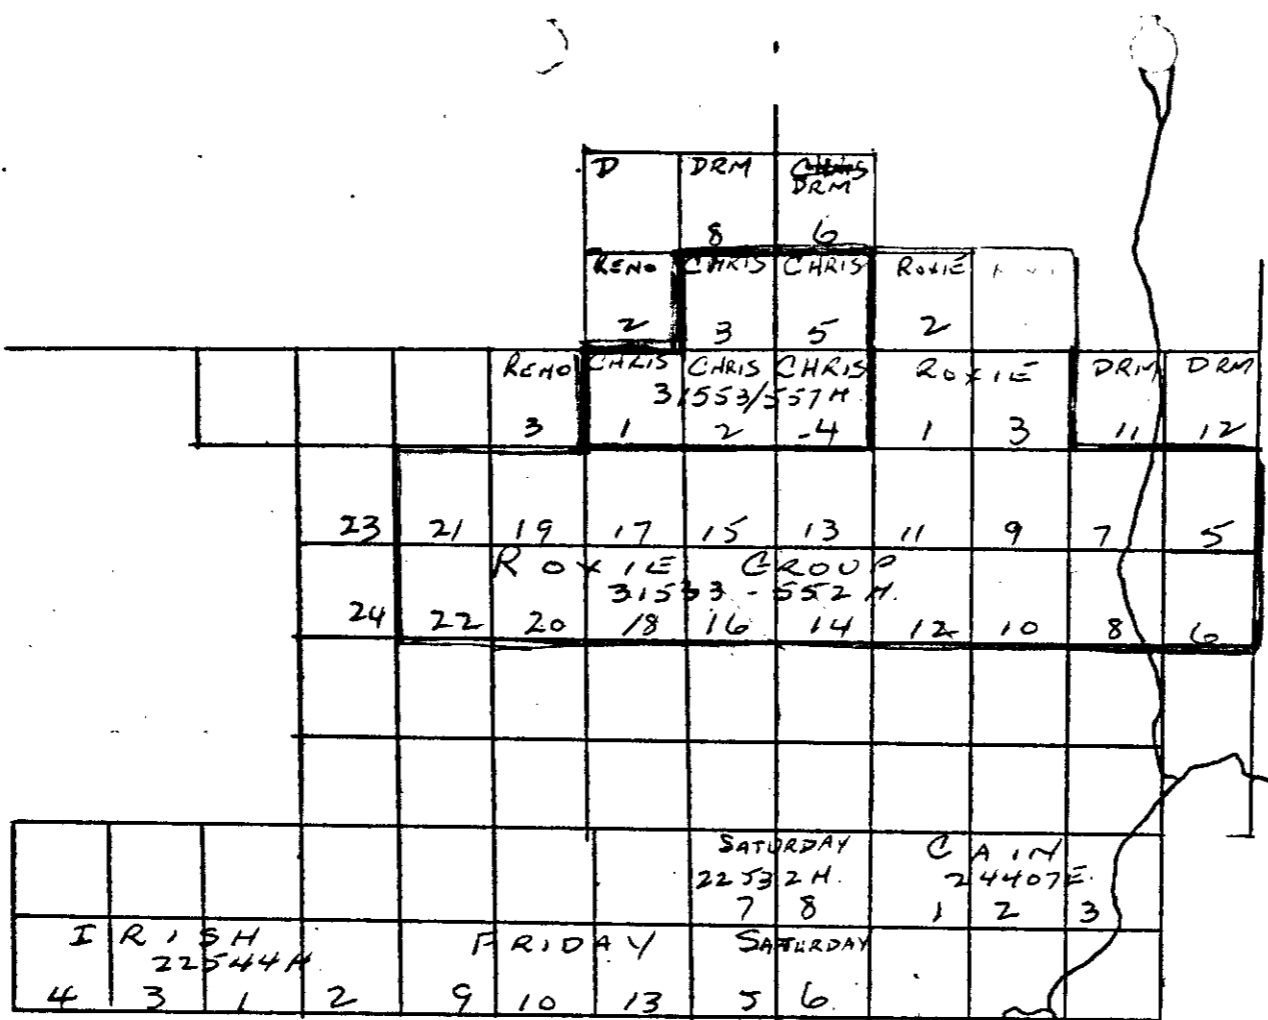 D DRM DRM
8 6
RENO CHRIS CHRIS ROXIE
2 3 5 2
RENO CHRIS CHRIS CHRIS ROXIE DRM DRM
31553/557H
3 1 2 -4 1 3 11 12
23 21 19 17 15 13 11 9 7 5
ROXIE GROUP
31533-552H.
24 22 20 18 16 14 12 10 8 6
SATURDAY CAIN
22532H. 24407E.
7 8 1 2 3
IRISH FRIDAY SATURDAY
22544H
4 3 1 2 9 10 13 5 6